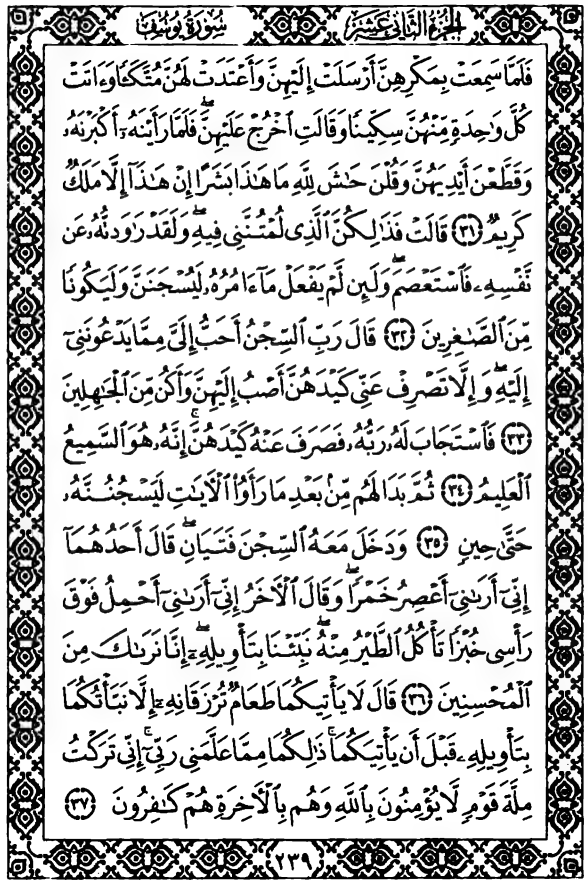 الجزء الثاني عشر
سورة يوسف
فَلَمَّا سَمِعَتْ بِمَكْرِهِنَّ أَرْسَلَتْ إِلَيْهِنَّ وَأَعْتَدَتْ لَهُنَّ مُتَّكَـًٔا وَءَاتَتْ
كُلَّ وَٰحِدَةٍ مِّنْهُنَّ سِكِّينًا وَقَالَتِ ٱخْرُجْ عَلَيْهِنَّ ۖ فَلَمَّا رَأَيْنَهُۥٓ أَكْبَرْنَهُۥ
وَقَطَّعْنَ أَيْدِيَهُنَّ وَقُلْنَ حَٰشَ لِلَّهِ مَا هَٰذَا بَشَرًا إِنْ هَٰذَآ إِلَّا مَلَكٌ
كَرِيمٌ ﴿٣١﴾ قَالَتْ فَذَٰلِكُنَّ ٱلَّذِى لُمْتُنَّنِى فِيهِ ۖ وَلَقَدْ رَٰوَدتُّهُۥ عَن
نَّفْسِهِۦ فَٱسْتَعْصَمَ ۖ وَلَئِن لَّمْ يَفْعَلْ مَآ ءَامُرُهُۥ لَيُسْجَنَنَّ وَلَيَكُونًا
مِّنَ ٱلصَّٰغِرِينَ ﴿٣٢﴾ قَالَ رَبِّ ٱلسِّجْنُ أَحَبُّ إِلَىَّ مِمَّا يَدْعُونَنِىٓ
إِلَيْهِ ۖ وَإِلَّا تَصْرِفْ عَنِّى كَيْدَهُنَّ أَصْبُ إِلَيْهِنَّ وَأَكُن مِّنَ ٱلْجَٰهِلِينَ
﴿٣٣﴾ فَٱسْتَجَابَ لَهُۥ رَبُّهُۥ فَصَرَفَ عَنْهُ كَيْدَهُنَّ ۚ إِنَّهُۥ هُوَ ٱلسَّمِيعُ
ٱلْعَلِيمُ ﴿٣٤﴾ ثُمَّ بَدَا لَهُم مِّنۢ بَعْدِ مَا رَأَوُا۟ ٱلْـَٔايَٰتِ لَيَسْجُنُنَّهُۥ
حَتَّىٰ حِينٍ ﴿٣٥﴾ وَدَخَلَ مَعَهُ ٱلسِّجْنَ فَتَيَانِ ۖ قَالَ أَحَدُهُمَآ
إِنِّىٓ أَرَىٰنِىٓ أَعْصِرُ خَمْرًا ۖ وَقَالَ ٱلْـَٔاخَرُ إِنِّىٓ أَرَىٰنِىٓ أَحْمِلُ فَوْقَ
رَأْسِى خُبْزًا تَأْكُلُ ٱلطَّيْرُ مِنْهُ ۖ نَبِّئْنَا بِتَأْوِيلِهِۦٓ ۖ إِنَّا نَرَىٰكَ مِنَ
ٱلْمُحْسِنِينَ ﴿٣٦﴾ قَالَ لَا يَأْتِيكُمَا طَعَامٌ تُرْزَقَانِهِۦٓ إِلَّا نَبَّأْتُكُمَا
بِتَأْوِيلِهِۦ قَبْلَ أَن يَأْتِيَكُمَا ۚ ذَٰلِكُمَا مِمَّا عَلَّمَنِى رَبِّىٓ ۚ إِنِّى تَرَكْتُ
مِلَّةَ قَوْمٍ لَّا يُؤْمِنُونَ بِٱللَّهِ وَهُم بِٱلْـَٔاخِرَةِ هُمْ كَٰفِرُونَ ﴿٣٧﴾
٢٣٩